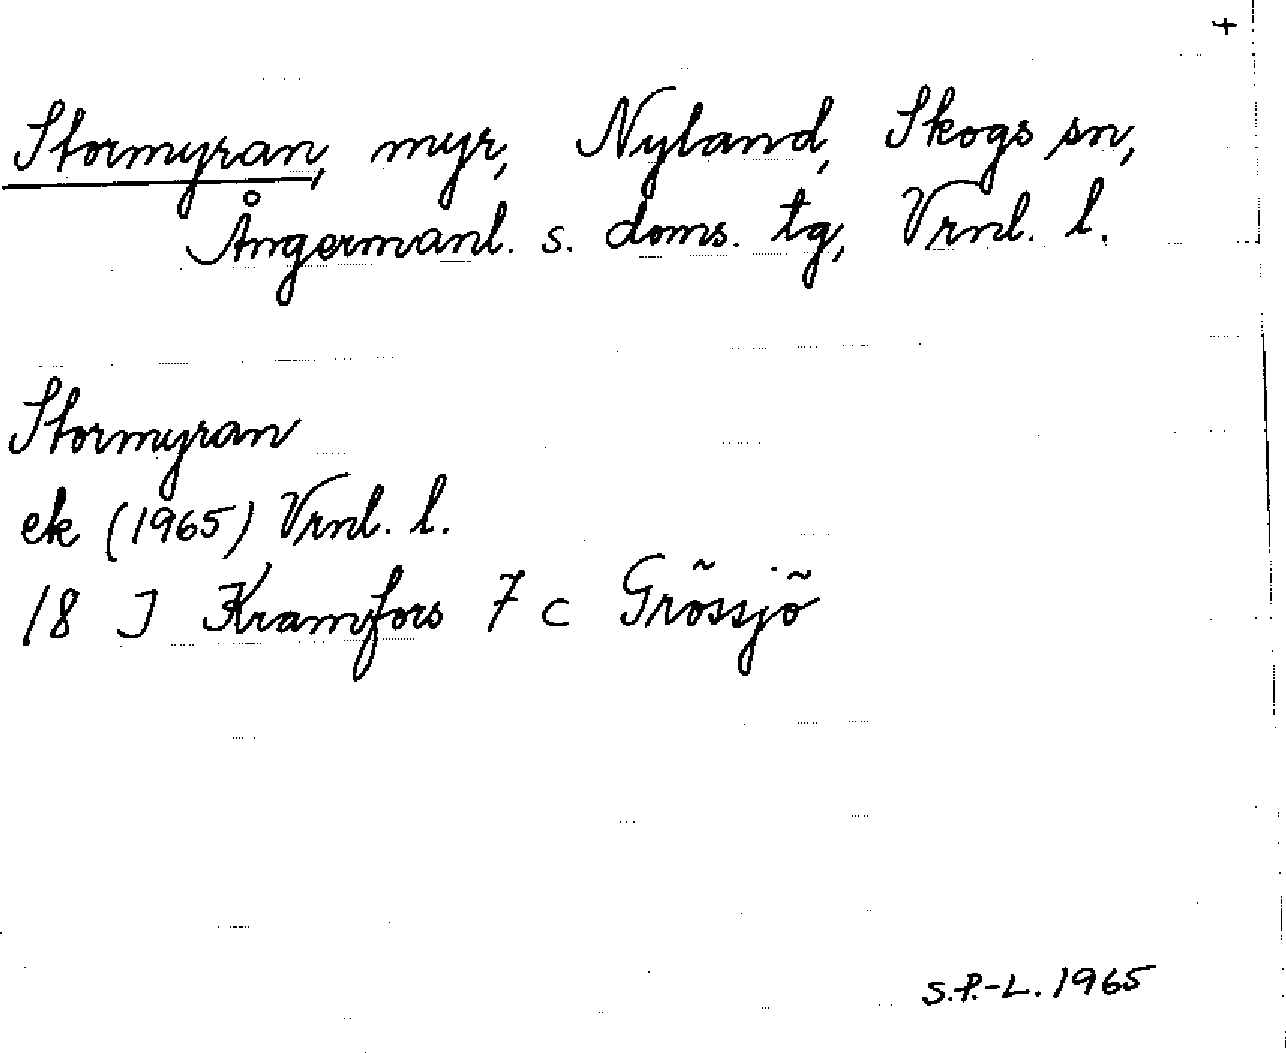 +
Stormyran, myr, Nyland, Skogs sn,
Ångermanl. s. doms. tg, Vrnl. l.
Stormyran
ek (1965) Vrnl. l.
18 J Kramfors 7 c Grössjö
S.P.-L. 1965